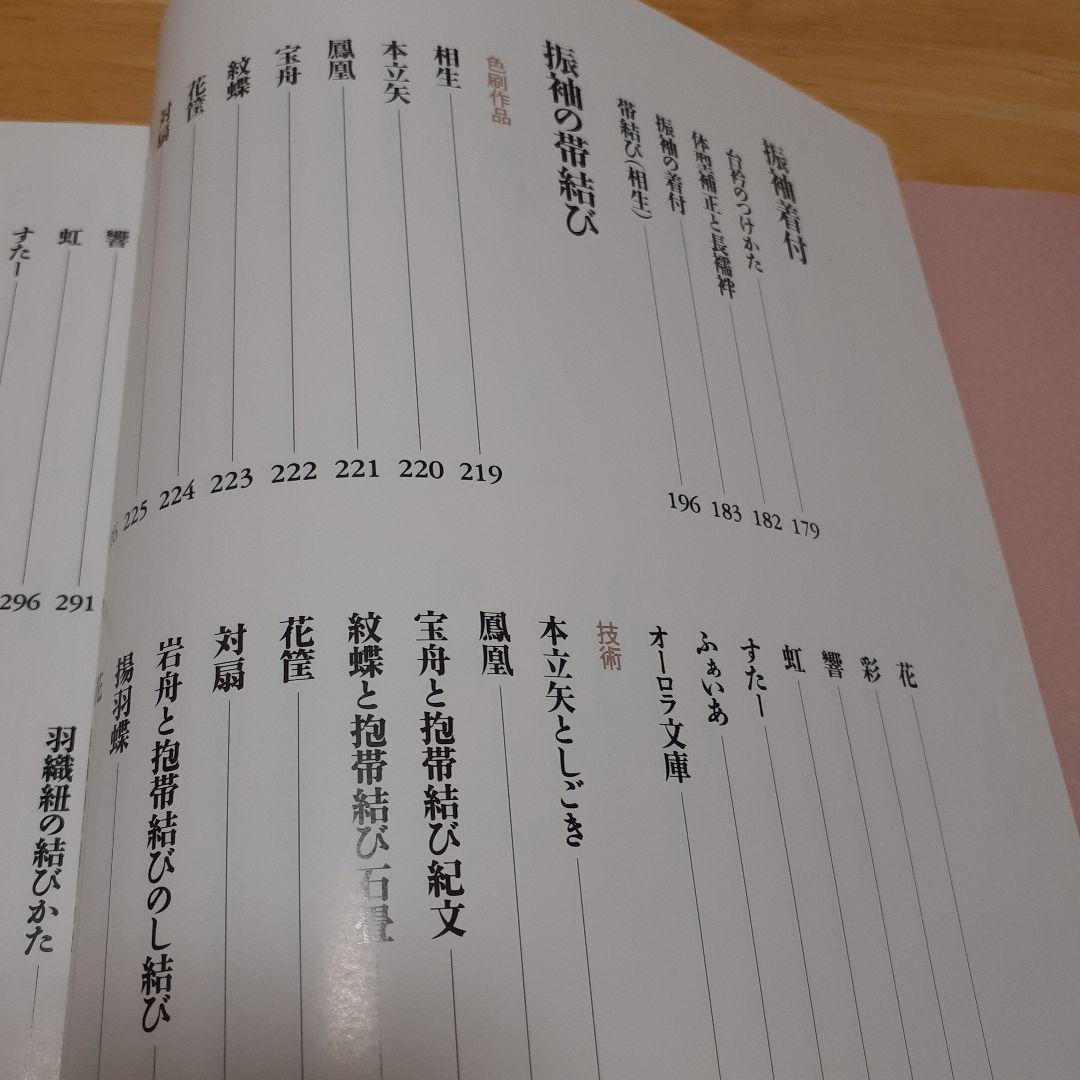 振袖着付 179
台衿のつけかた 182
体型補正と長襦袢 183
振袖の着付 196
帯結び(相生)
振袖の帯結び
色刷作品
相生 219
本立矢 220
鳳凰 221
宝舟 222
紋蝶 223
花筐 224
対扇 225
花
彩
響
虹
すたー
ふぁいあ
オーロラ文庫
技術
本立矢としごき
鳳凰
宝舟と抱帯結び紀文
紋蝶と抱帯結び石畳
花筐
対扇
岩舟と抱帯結びのし結び
揚羽蝶
響
虹 291
すたー 296
羽織紐の結びかた